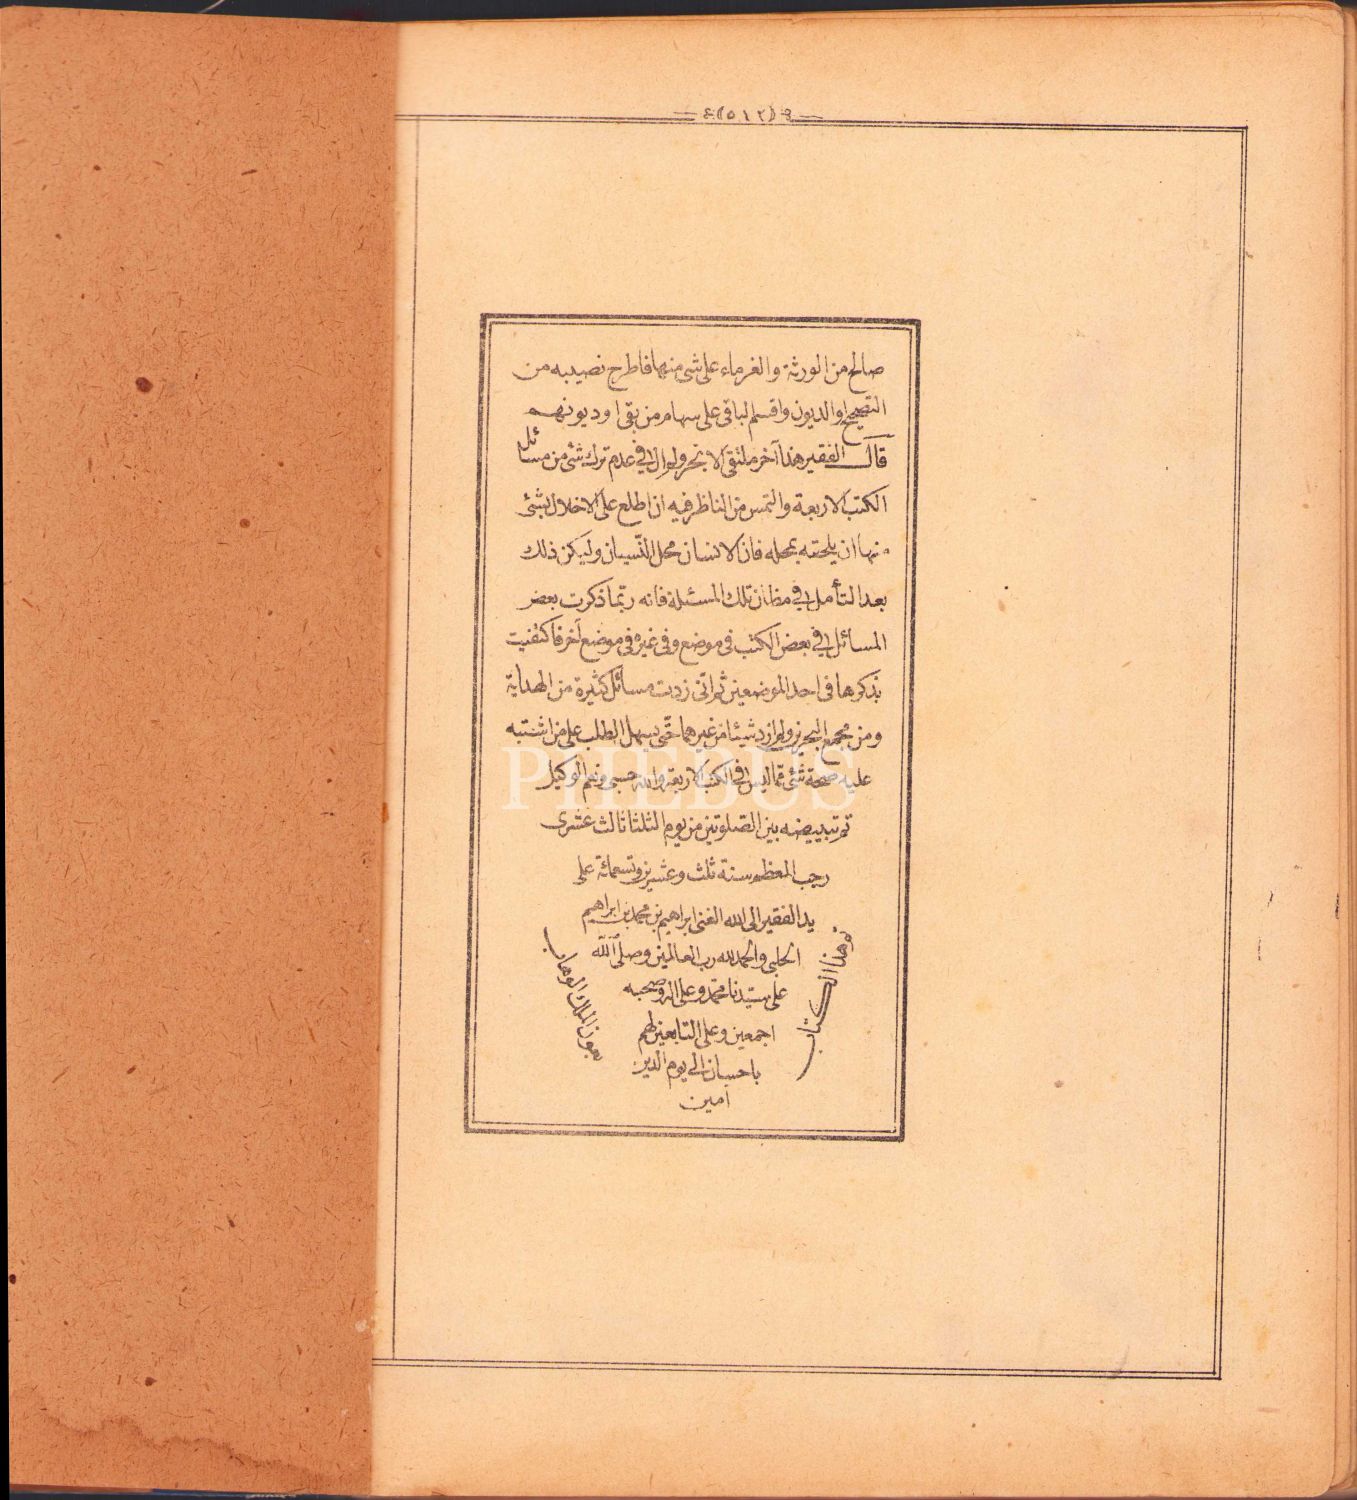 ٥١٢
صالح من الورثة والغرماء على شئ منها فاطرح نصيبه من
التصحيح او الديون واقسم الباقى على سهام من بقى او ديونهم
قال الفقير هذا آخر ملتقى الابحر ولم آل فى عدم ترك شئ من مسائل
الكتب الاربعة والتمس من الناظر فيه ان اطلع على الاخلال بشئ
منها ان يلحقه بمحله فان الانسان محل النسيان وليكن ذلك
بعد التأمل فى مظان تلك المسئلة فانه ربما ذكرت بعض
المسائل فى بعض الكتب فى موضع وفى غيره فى موضع آخر فاكتفيت
بذكرها فى احد الموضعين ثم انى زدت مسائل كثيرة من الهداية
ومن مجمع البحرين ولم ازد شيئا من غيرهما حتى يسهل الطلب على من اشتبه
عليه صحة شئ مما ليس فى الكتب الاربعة والله حسبى ونعم الوكيل
PHEBUS
تم تبييضه بين الصلوتين من يوم الثلثا ثالث عشرى
رجب المعظم سنة ثلث وعشرين وتسعمائة على
يد الفقير الى الله الغنى ابراهيم بن محمد بن ابراهيم
الحلبى والحمد لله رب العالمين وصلى الله
على سيدنا محمد وعلى اله وصحبه
اجمعين وعلى التابعين لهم
باحسان الى يوم الدين
امين
تم هذا الكتاب
بعون الملك الوهاب